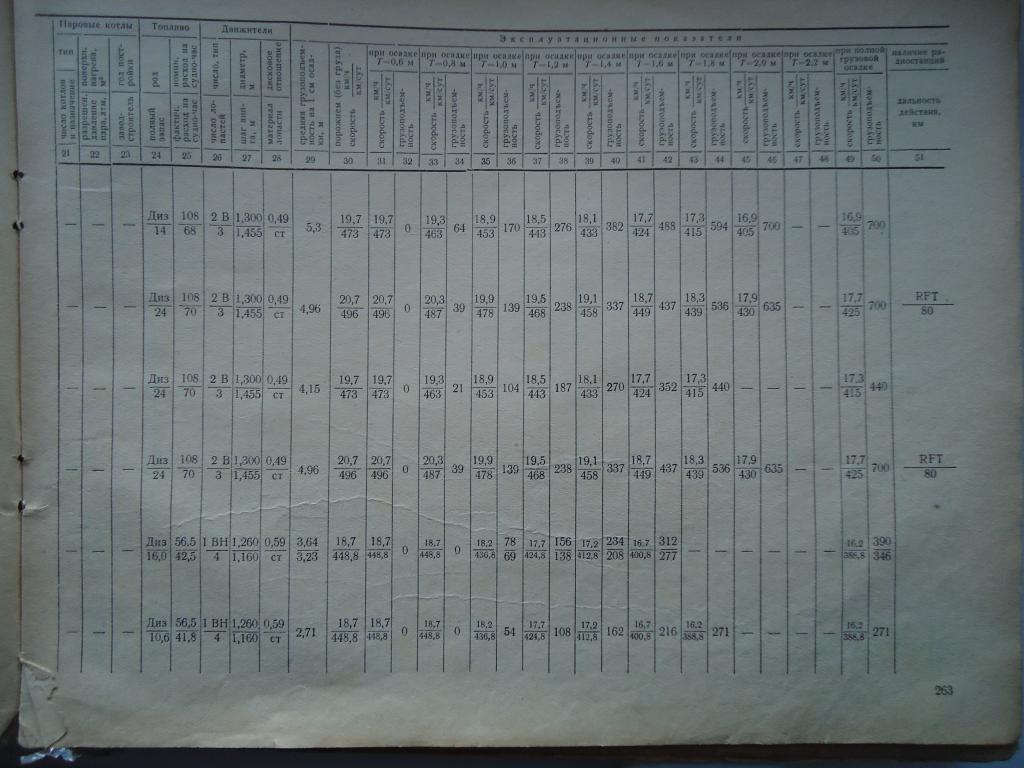 Паровые котлы | Топливо | Движители | Эксплуатационные показатели
тип | поверхн. нагрева, м² | год пост-ройки | род | номин. расход на судно-час | число, тип | диаметр, м | дисковое отношение | средняя грузоподъем-ность на 1 см осад-ки, м | порожнем (без груза) км/ч км/сут | при осадке Т=0,6 м | при осадке Т=0,8 м | при осадке Т=1,0 м | при осадке Т=1,2 м | при осадке Т=1,4 м | при осадке Т=1,6 м | при осадке Т=1,8 м | при осадке Т=2,0 м | при осадке Т=2,2 м | при полной грузовой осадке | наличие ра-диостанций
число котлов и назначение | разрешен. давление пара, атм. | завод-строитель | полный запас | фактич. расход на судно-час | число ло-пастей | шаг вин-та, м | материал лопасти | скорость | скорость км/ч км/сут | грузоподъем-ность | скорость км/ч км/сут | грузоподъем-ность | скорость км/ч км/сут | грузоподъем-ность | скорость км/ч км/сут | грузоподъем-ность | скорость км/ч км/сут | грузоподъем-ность | скорость км/ч км/сут | грузоподъем-ность | скорость км/ч км/сут | грузоподъем-ность | скорость км/ч км/сут | грузоподъем-ность | скорость км/ч км/сут | грузоподъем-ность | скорость км/ч км/сут | грузоподъем-ность | дальность действия, км
21 22 23 24 25 26 27 28 29 30 31 32 33 34 35 36 37 38 39 40 41 42 43 44 45 46 47 48 49 50 51
— — — Диз/14 108/68 2 В/3 1,300/1,455 0,49/ст 5,3 19,7/473 19,7/473 0 19,3/463 64 18,9/453 170 18,5/443 276 18,1/433 382 17,7/424 488 17,3/415 594 16,9/405 700 — — 16,9/405 700 —
— — — Диз/24 108/70 2 В/3 1,300/1,455 0,49/ст 4,96 20,7/496 20,7/496 0 20,3/487 39 19,9/478 139 19,5/468 238 19,1/458 337 18,7/449 437 18,3/439 536 17,9/430 635 — — 17,7/425 700 RFT/80
— — — Диз/24 108/70 2 В/3 1,300/1,455 0,49/ст 4,15 19,7/473 19,7/473 0 19,3/463 21 18,9/453 104 18,5/443 187 18,1/433 270 17,7/424 352 17,3/415 440 — — — — 17,3/415 440 —
— — — Диз/24 108/70 2 В/3 1,300/1,455 0,49/ст 4,96 20,7/496 20,7/496 0 20,3/487 39 19,9/478 139 19,5/468 238 19,1/458 337 18,7/449 437 18,3/439 536 17,9/430 635 — — 17,7/425 700 RFT/80
— — — Диз/16,0 56,5/42,5 1 ВН/4 1,260/1,160 0,59/ст 3,64/3,23 18,7/448,8 18,7/448,8 0 18,7/448,8 0 18,2/436,8 78/69 17,7/424,8 156/138 17,2/412,8 234/208 16,7/400,8 312/277 — — — — — — 16,2/388,8 390/346 —
— — — Диз/10,6 56,5/41,8 1 ВН/4 1,260/1,160 0,59/ст 2,71 18,7/448,8 18,7/448,8 0 18,7/448,8 0 18,2/436,8 54 17,7/424,8 108 17,2/412,8 162 16,7/400,8 216 16,2/388,8 271 — — — — 16,2/388,8 271 —
263